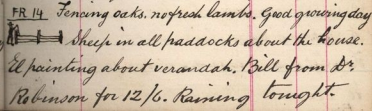 FR 14 Fencing oaks. no fresh lambs. Good growing day
Sheep in all paddocks about the house.
El painting about verandah. Bill from Dr.
Robinson for 12/6. Raining tonight.